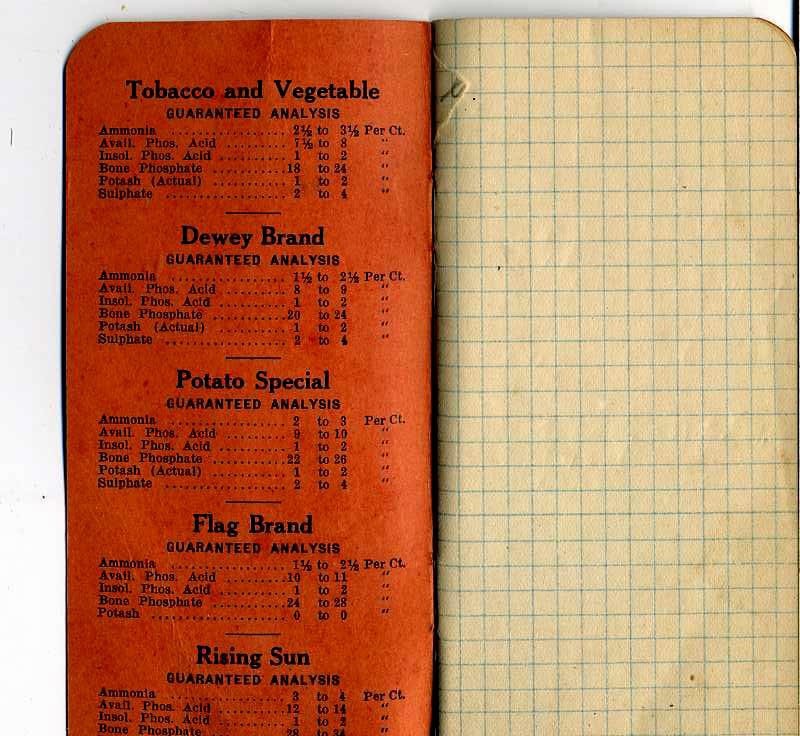 Tobacco and Vegetable
GUARANTEED ANALYSIS
Ammonia .................. 2½ to 3½ Per Ct.
Avail. Phos. Acid .......... 7½ to 8 "
Insol. Phos. Acid ........... 1 to 2 "
Bone Phosphate ............18 to 24 "
Potash (Actual) ............ 1 to 2 "
Sulphate ................... 2 to 4 "
Dewey Brand
GUARANTEED ANALYSIS
Ammonia .................. 1½ to 2½ Per Ct.
Avail. Phos. Acid ........... 8 to 9 "
Insol. Phos. Acid ........... 1 to 2 "
Bone Phosphate ............20 to 24 "
Potash (Actual) ............ 1 to 2 "
Sulphate ................... 2 to 4 "
Potato Special
GUARANTEED ANALYSIS
Ammonia .................. 2 to 3 Per Ct.
Avail. Phos. Acid ........... 9 to 10 "
Insol. Phos. Acid ........... 1 to 2 "
Bone Phosphate ............22 to 26 "
Potash (Actual) ............ 1 to 2 "
Sulphate ................... 2 to 4 "
Flag Brand
GUARANTEED ANALYSIS
Ammonia .................. 1½ to 2½ Per Ct.
Avail. Phos. Acid ..........10 to 11 "
Insol. Phos. Acid ........... 1 to 2 "
Bone Phosphate ............24 to 28 "
Potash ..................... 0 to 0 "
Rising Sun
GUARANTEED ANALYSIS
Ammonia .................. 3 to 4 Per Ct.
Avail. Phos. Acid ..........12 to 14 "
Insol. Phos. Acid ........... 1 to 2 "
Bone Phosphate ............28 to 34 "